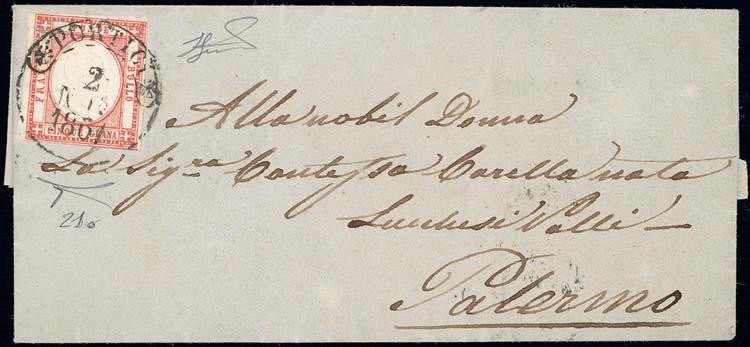 PORTICI
2
1861
FRANCO BOLLO
GRANA
Alla nobil Donna
La Sig.ra Contessa Carella nata
Lucchesi Palli
Palermo